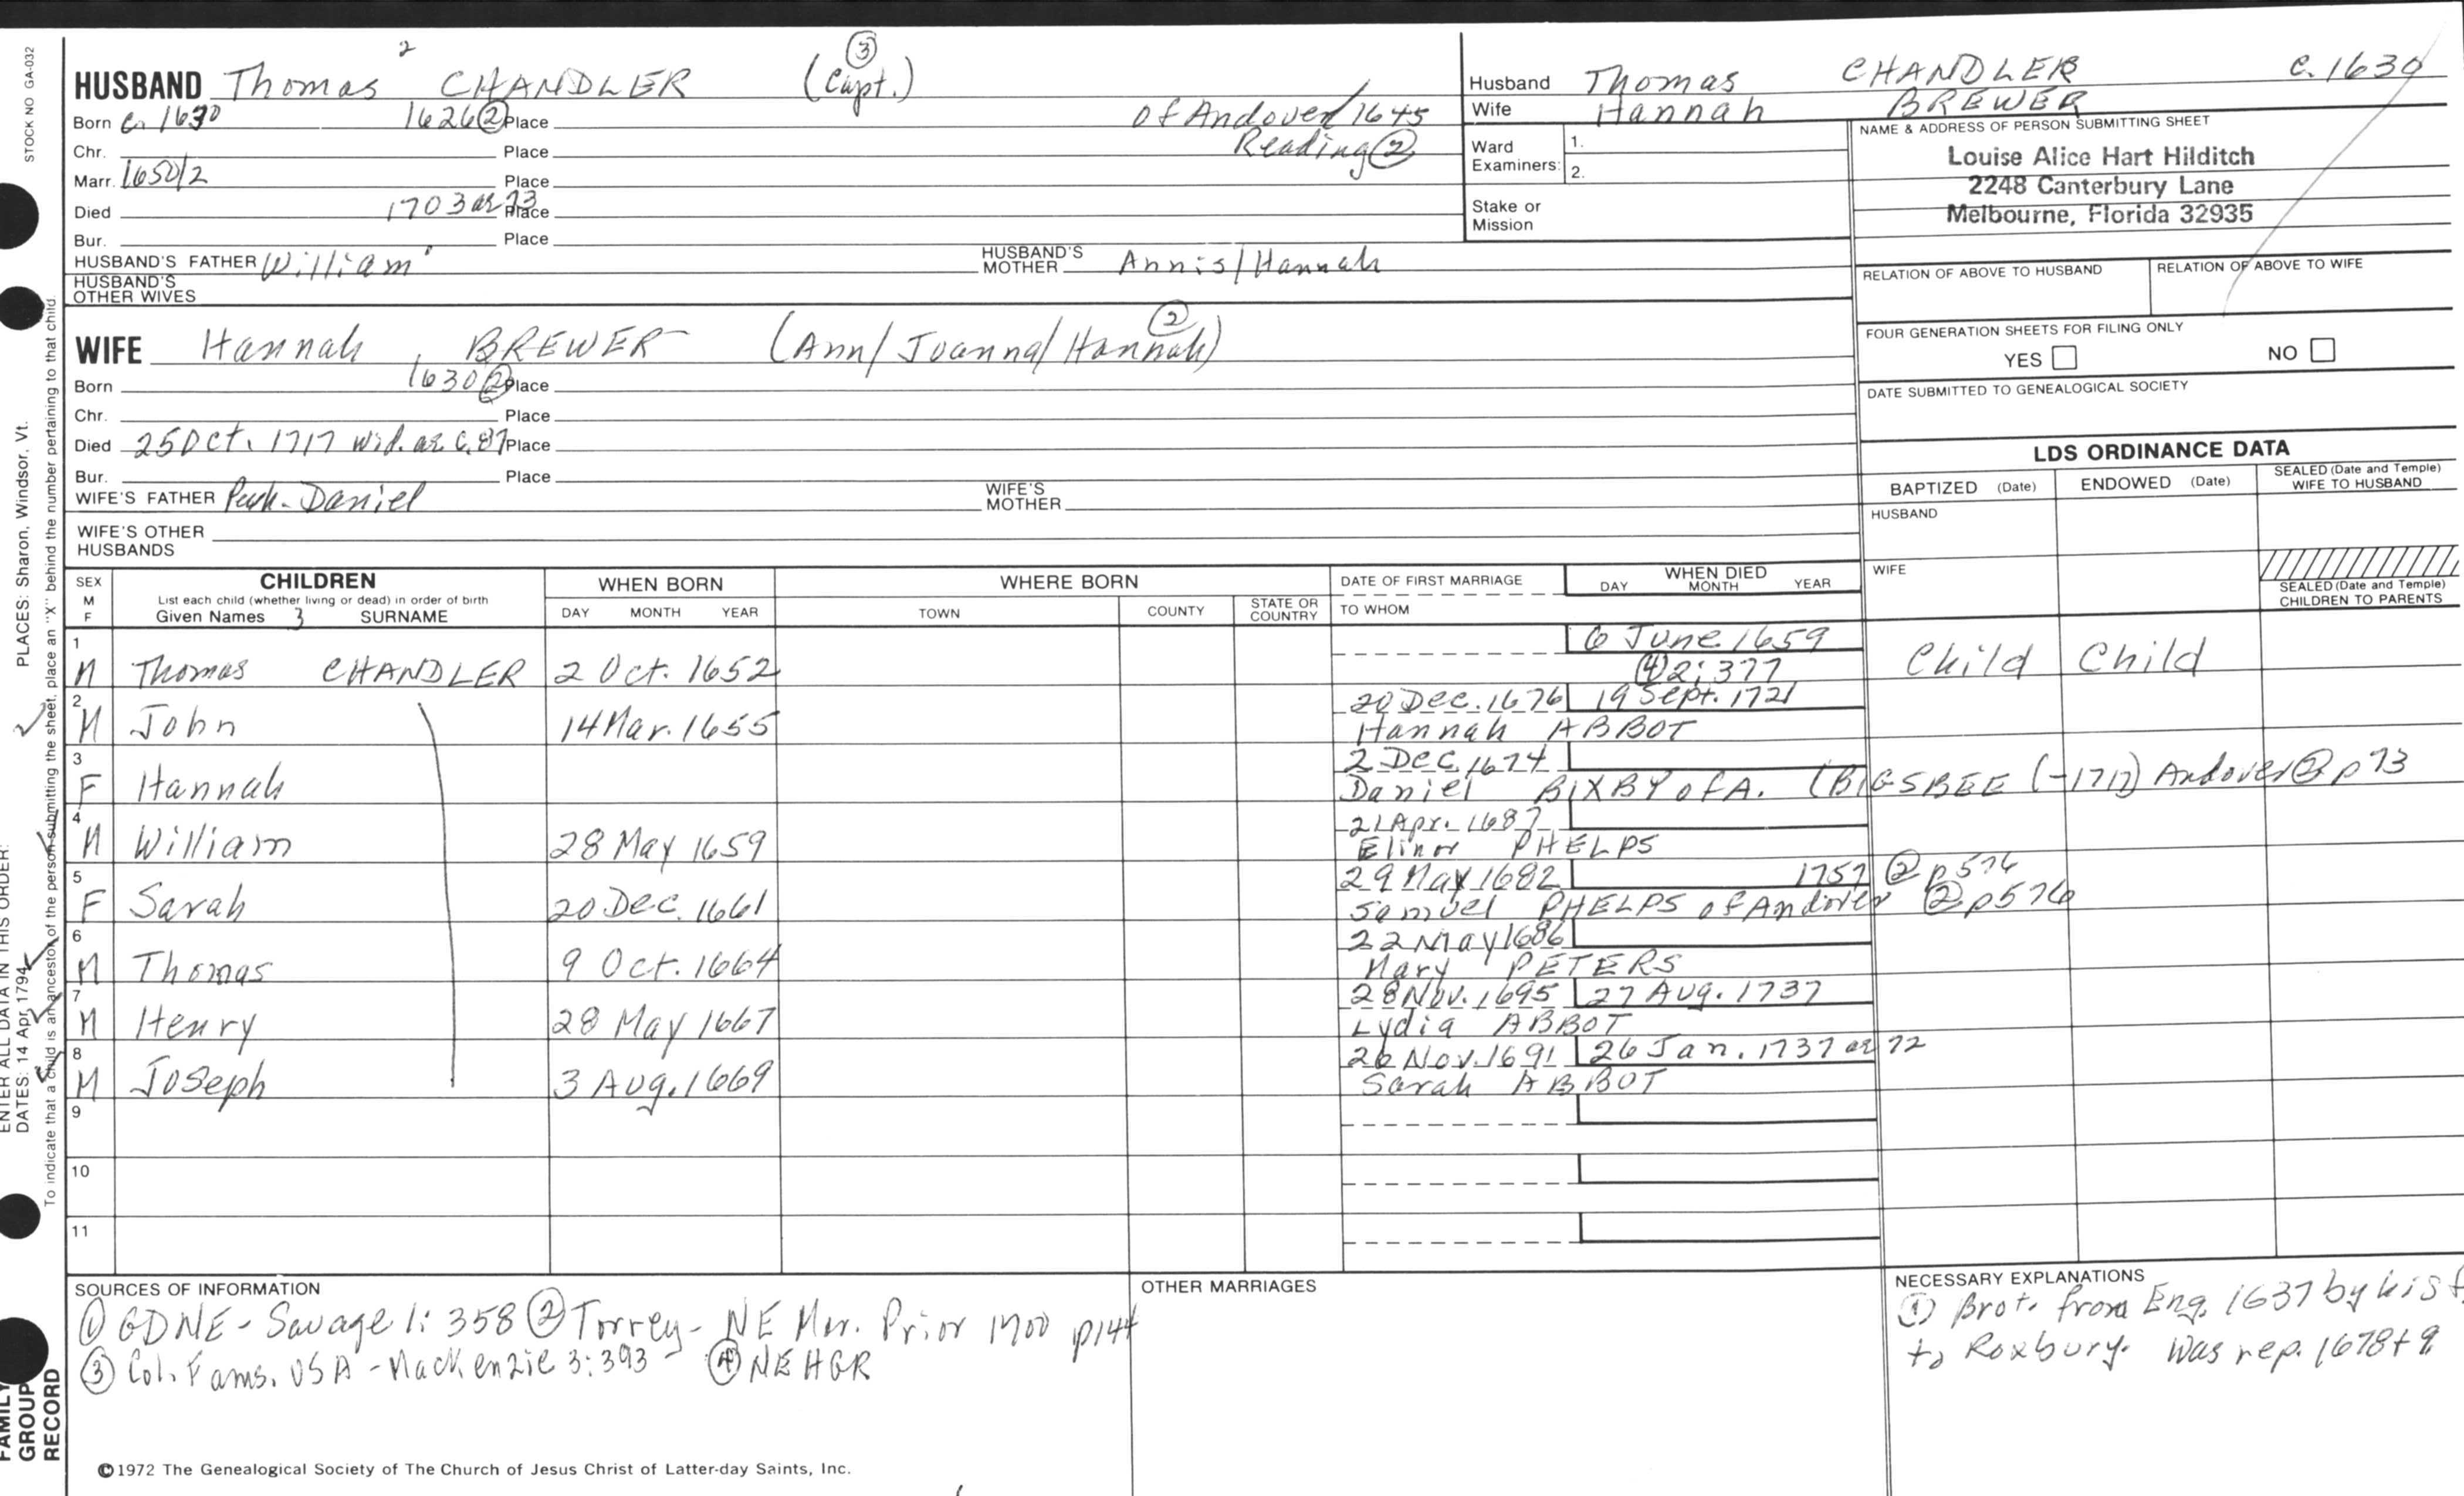 STOCK NO GA-032
PLACES: Sharon, Windsor, Vt.
ENTER ALL DATA IN THIS ORDER:
DATES: 14 Apr 1794
To indicate that a child is an ancestor of the person submitting the sheet, place an "X" behind the number pertaining to that child.
FAMILY
GROUP
RECORD
HUSBAND Thomas 2 CHANDLER (Capt.) 3
Born c. 1630 1626 2 Place of Andover 1645
Chr. Place Reading 2
Marr. 1650/2 Place
Died 1703 ae 73 Place
Bur. Place
HUSBAND'S FATHER William 1 HUSBAND'S MOTHER Annis/Hannah
HUSBAND'S OTHER WIVES
WIFE Hannah, BREWER (Ann/Joanna/Hannah) 2
Born 1630 2 Place
Chr. Place
Died 25 Oct. 1717 wid. ae c. 87 Place
Bur. Place
WIFE'S FATHER Daniel WIFE'S MOTHER
WIFE'S OTHER HUSBANDS
Husband Thomas CHANDLER c. 1630
Wife Hannah BREWER
Ward Examiners: 1.
2.
Stake or Mission
NAME & ADDRESS OF PERSON SUBMITTING SHEET
Louise Alice Hart Hilditch
2248 Canterbury Lane
Melbourne, Florida 32935
RELATION OF ABOVE TO HUSBAND RELATION OF ABOVE TO WIFE
FOUR GENERATION SHEETS FOR FILING ONLY
YES NO
DATE SUBMITTED TO GENEALOGICAL SOCIETY
LDS ORDINANCE DATA
BAPTIZED (Date) ENDOWED (Date) SEALED (Date and Temple) WIFE TO HUSBAND
HUSBAND
WIFE
SEALED (Date and Temple) CHILDREN TO PARENTS
SEX M F
CHILDREN
List each child (whether living or dead) in order of birth
Given Names 3 SURNAME
WHEN BORN
DAY MONTH YEAR
WHERE BORN
TOWN COUNTY STATE OR COUNTRY
DATE OF FIRST MARRIAGE
TO WHOM
WHEN DIED
DAY MONTH YEAR
1 6 June 1659
M Thomas CHANDLER 2 Oct. 1652 4 2:377 Child Child
2 20 Dec. 1676 19 Sept. 1721
M John 14 Mar. 1655 Hannah ABBOT
3 2 Dec. 1674
F Hannah Daniel BIXBY of A. (BIGSBEE (-1717) Andover 2 p 73
4 21 Apr. 1687
M William 28 May 1659 Elinor PHELPS
5 29 May 1682 1757 2 p576
F Sarah 20 Dec. 1661 Samuel PHELPS of Andover 2 p576
6 22 May 1686
M Thomas 9 Oct. 1664 Mary PETERS
7 28 Nov. 1695 27 Aug. 1737
M Henry 28 May 1667 Lydia ABBOT
8 26 Nov. 1691 26 Jan. 1737 ae 72
M Joseph 3 Aug. 1669 Sarah ABBOT
9
10
11
SOURCES OF INFORMATION
1 GDNE - Savage 1:358 2 Torrey - NE Mar. Prior 1700 p144
3 Col. Fams. USA - MacKenzie 3:393 4 NEHGR
OTHER MARRIAGES
NECESSARY EXPLANATIONS
1 Brot. from Eng. 1637 by his f.
to Roxbury. Was rep. 1678+9
©1972 The Genealogical Society of The Church of Jesus Christ of Latter-day Saints, Inc.